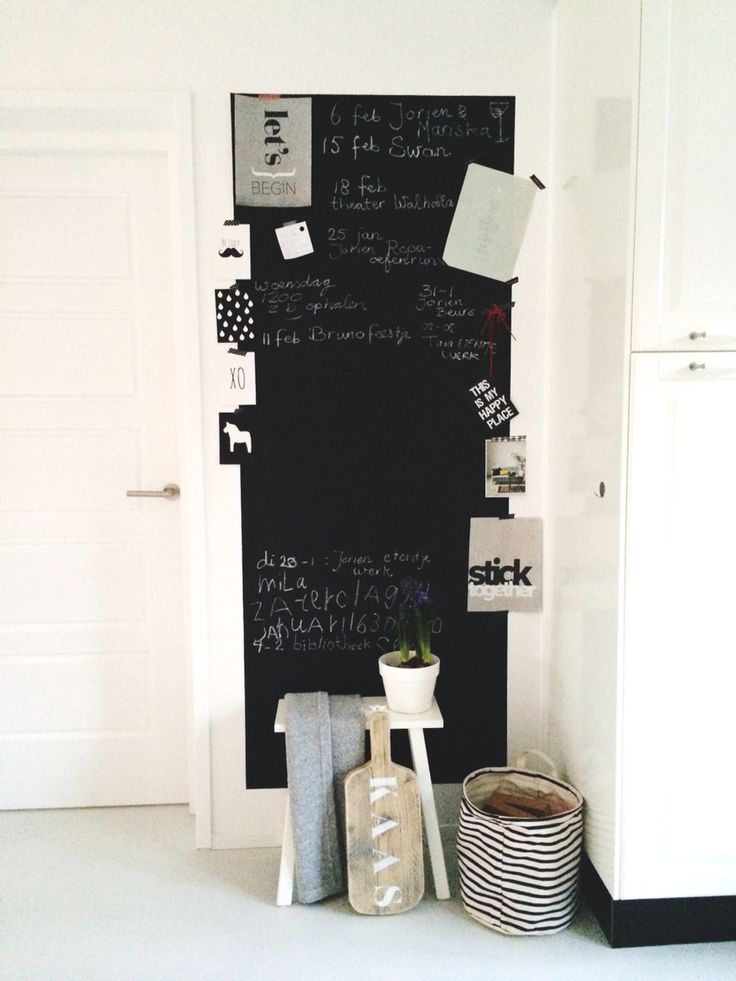 let's
BEGIN
6 feb Jorien &
Mariska
15 feb Swan
18 feb
theater Walhalla
25 jan
Jorien Repa-
woensdag
1200
ophalen
31-1
Jorien
Beurs
02-02
WERK
11 feb Brunofeestje
XO
THIS
IS MY
HAPPY
PLACE
stick
together
di 28-1: Jorien etentje
werk
miLa
4-2 bibliotheek
KAAS